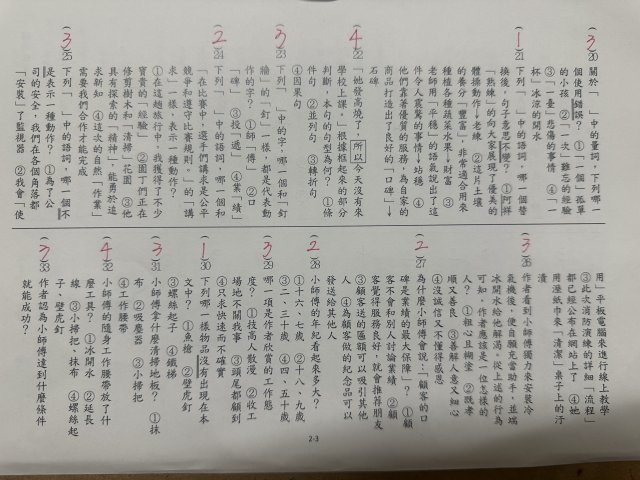 (3)20 關於「　」中的量詞,下列哪一
個使用錯誤? ①「一個」孤單
的小孩 ②「一次」難忘的經驗
③「一件」悲傷的事情 ④「一
杯」冰涼的開水
(1)21 下列「　」中的語詞,哪一個替
換後,句子意思不變? ①阿祥
「熟練」的向大家展現了優美的
體操動作→老練 ②這片土壤
的養分「豐富」,非常適合用來
種植各種蔬菜水果→財富 ③
老師用「平穩」的語氣說出了這
件令人震驚的事情→站穩 ④
他們靠著優質的服務,為自家的
商品打造出了良好的「口碑」→
石碑
(4)22 「她發高燒了,所以今天沒有來
學校上課。」根據框起來的部分
判斷,本句的句型為何? ①條
件句 ②並列句 ③轉折句
④因果句
(3)23 下列「　」中的字,哪一個和「釘
牆」的「釘」一樣,都是代表動
作的字? ①師「傅」 ②口
「碑」 ③投「遞」 ④業「績」
(2)24 下列「　」中的語詞,哪一個和
「在比賽中,選手們講求是公平
競爭和遵守比賽規則。」的「講
求」一樣,表示一種動作?
①在這趟旅行中,我獲得了不少
寶貴的「經驗」 ②園丁們正在
修剪樹木和「清掃」花園 ③他
具有探索的「精神」,能勇於追
求新知 ④這次的自然「作業」
需要我們合作才能完成
(3)25 下列「　」中的語詞,哪一個不
是表示一種動作? ①為了公
司的安全,我們在各個角落都
「安裝」了監視器 ②我會「使
用」平板電腦來進行線上教學
③此次消防演練的詳細「流程」
都已經公布在網站上了 ④她
用溼紙巾來「清潔」桌子上的汙
漬
(3)26 作者看到小師傅獨力來安裝冷
氣機後,便自願充當助手,並端
冰開水給他解渴。從上述的行為
可知,作者應該是一位怎樣的
人? ①粗心且糊塗 ②既孝
順又善良 ③善解人意又細心
④沒誠信又不懂得感恩
(2)27 為什麼小師傅會說:「顧客的口
碑是業績的最大保障。」? ①顧
客不會和別人討論業績 ②顧
客覺得服務良好,就會推薦朋友
③顧客送的匾額可以吸引其他
人 ④為顧客做的紀念品可以
發送給其他人
(2)28 小師傅的年紀看起來多大?
①十六、七歲 ②十八、九歲
③二、三十歲 ④四、五十歲
(3)29 哪一項是作者欣賞的工作態
度? ①技高人散漫 ②收工
場地不關我事 ③頭尾都顧到
④只求快速而不確實
(1)30 下列哪一樣物品沒有出現在本
文中? ①魚槍 ②壁虎釘
③螺絲起子 ④鐵梯
(3)31 小師傅拿什麼清掃地板? ①抹
布 ②吸塵器 ③小掃把
④工作腰帶
(4)32 小師傅的隨身工作腰帶放了什
麼工具? ①冰開水 ②延長
線 ③小掃把、抹布 ④螺絲起
子、壁虎釘
(3)33 作者認為小師傅達到什麼條件
就能成功?
2-3